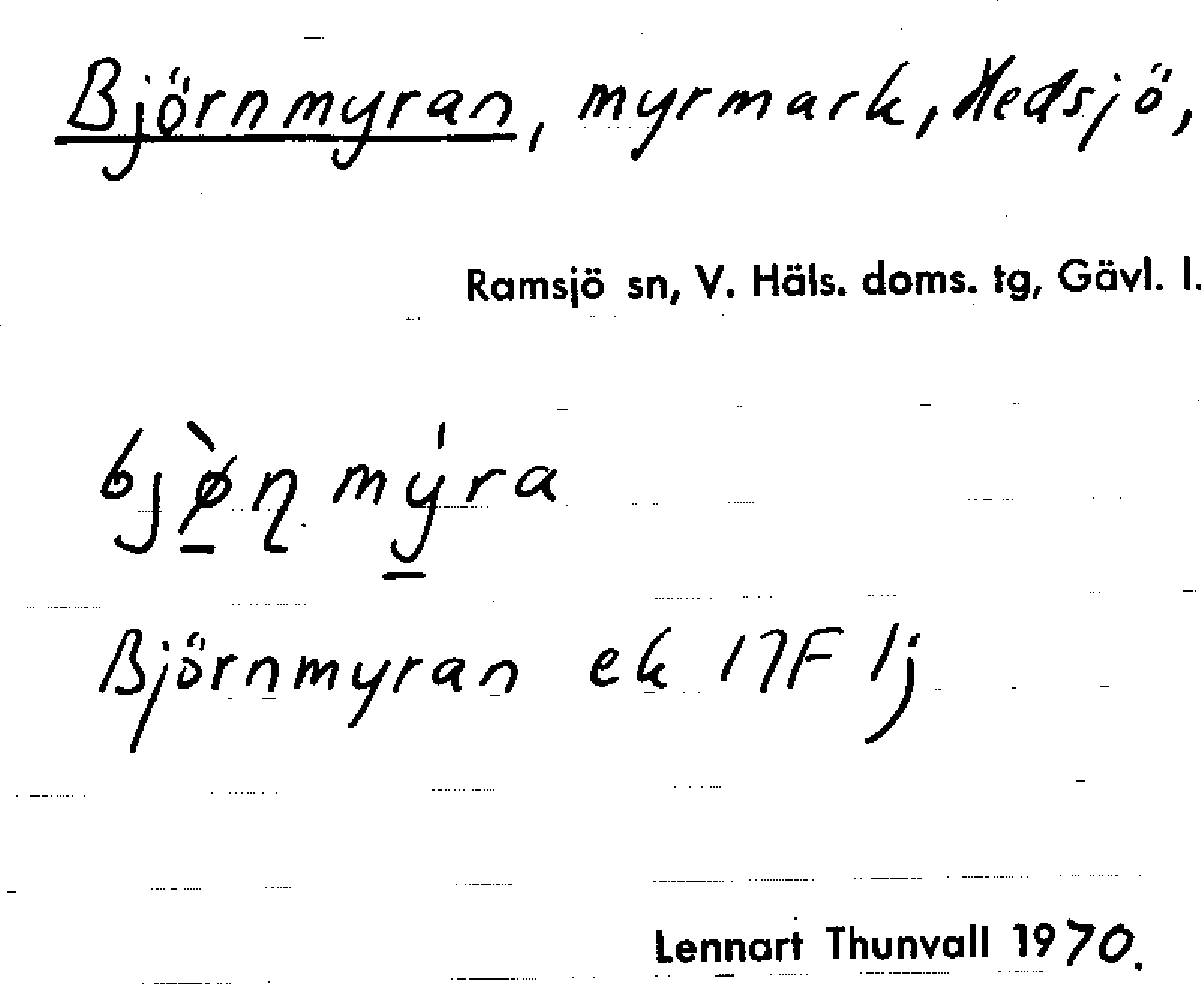 Björnmyran, myrmark, Hedsjö,
Ramsjö sn, V. Häls. doms. tg, Gävl. l.
bjø̀ɳmy̍ra
Björnmyran ek 17F 1j
Lennart Thunvall 1970.